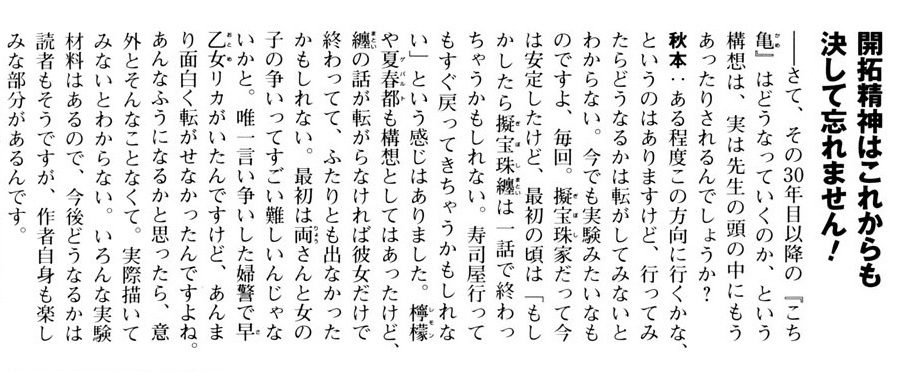 開拓精神はこれからも
決して忘れません!
――さて、その30年目以降の『こち
亀』はどうなっていくのか、という
構想は、実は先生の頭の中にもう
あったりされるんでしょうか?
秋本:ある程度この方向に行くかな、
というのはありますけど、行ってみ
たらどうなるかは転がしてみないと
わからない。今でも実験みたいなも
のですよ、毎回。擬宝珠家だって今
は安定したけど、最初の頃は「もし
かしたら擬宝珠纏は一話で終わっ
ちゃうかもしれない。寿司屋行って
もすぐ戻ってきちゃうかもしれな
い」という感じはありました。檸檬
や夏春都も構想としてはあったけど、
纏の話が転がらなければ彼女だけで
終わってて、ふたりとも出なかった
かもしれない。最初は両さんと女の
子の争いってすごい難しいんじゃな
いかと。唯一言い争いした婦警で早
乙女リカがいたんですけど、あんま
り面白く転がせなかったんですよね。
あんなふうになるかと思ったら、意
外とそんなことなくて。実際描いて
みないとわからない。いろんな実験
材料はあるので、今後どうなるかは
読者もそうですが、作者自身も楽し
みな部分があるんです。